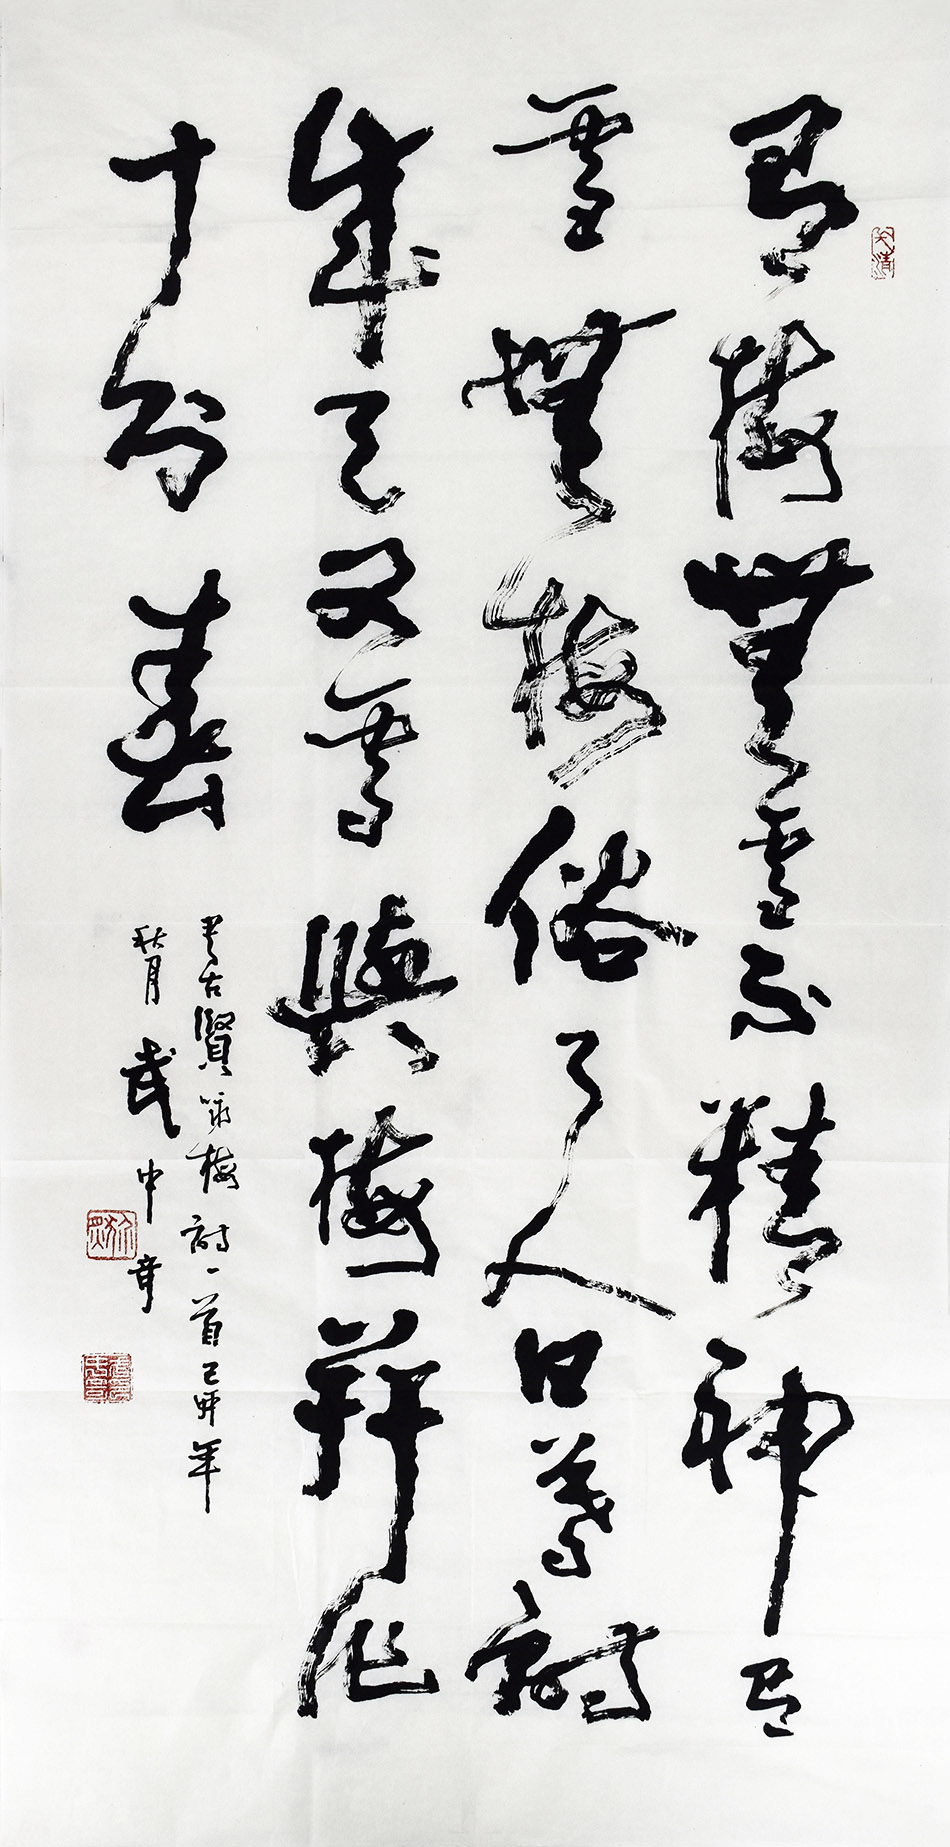 有梅無雪不精神有
雪無梅俗了人日暮詩
成天又雪與梅并作
十分春
書古賢咏梅詩一首己卯年
秋月武中奇